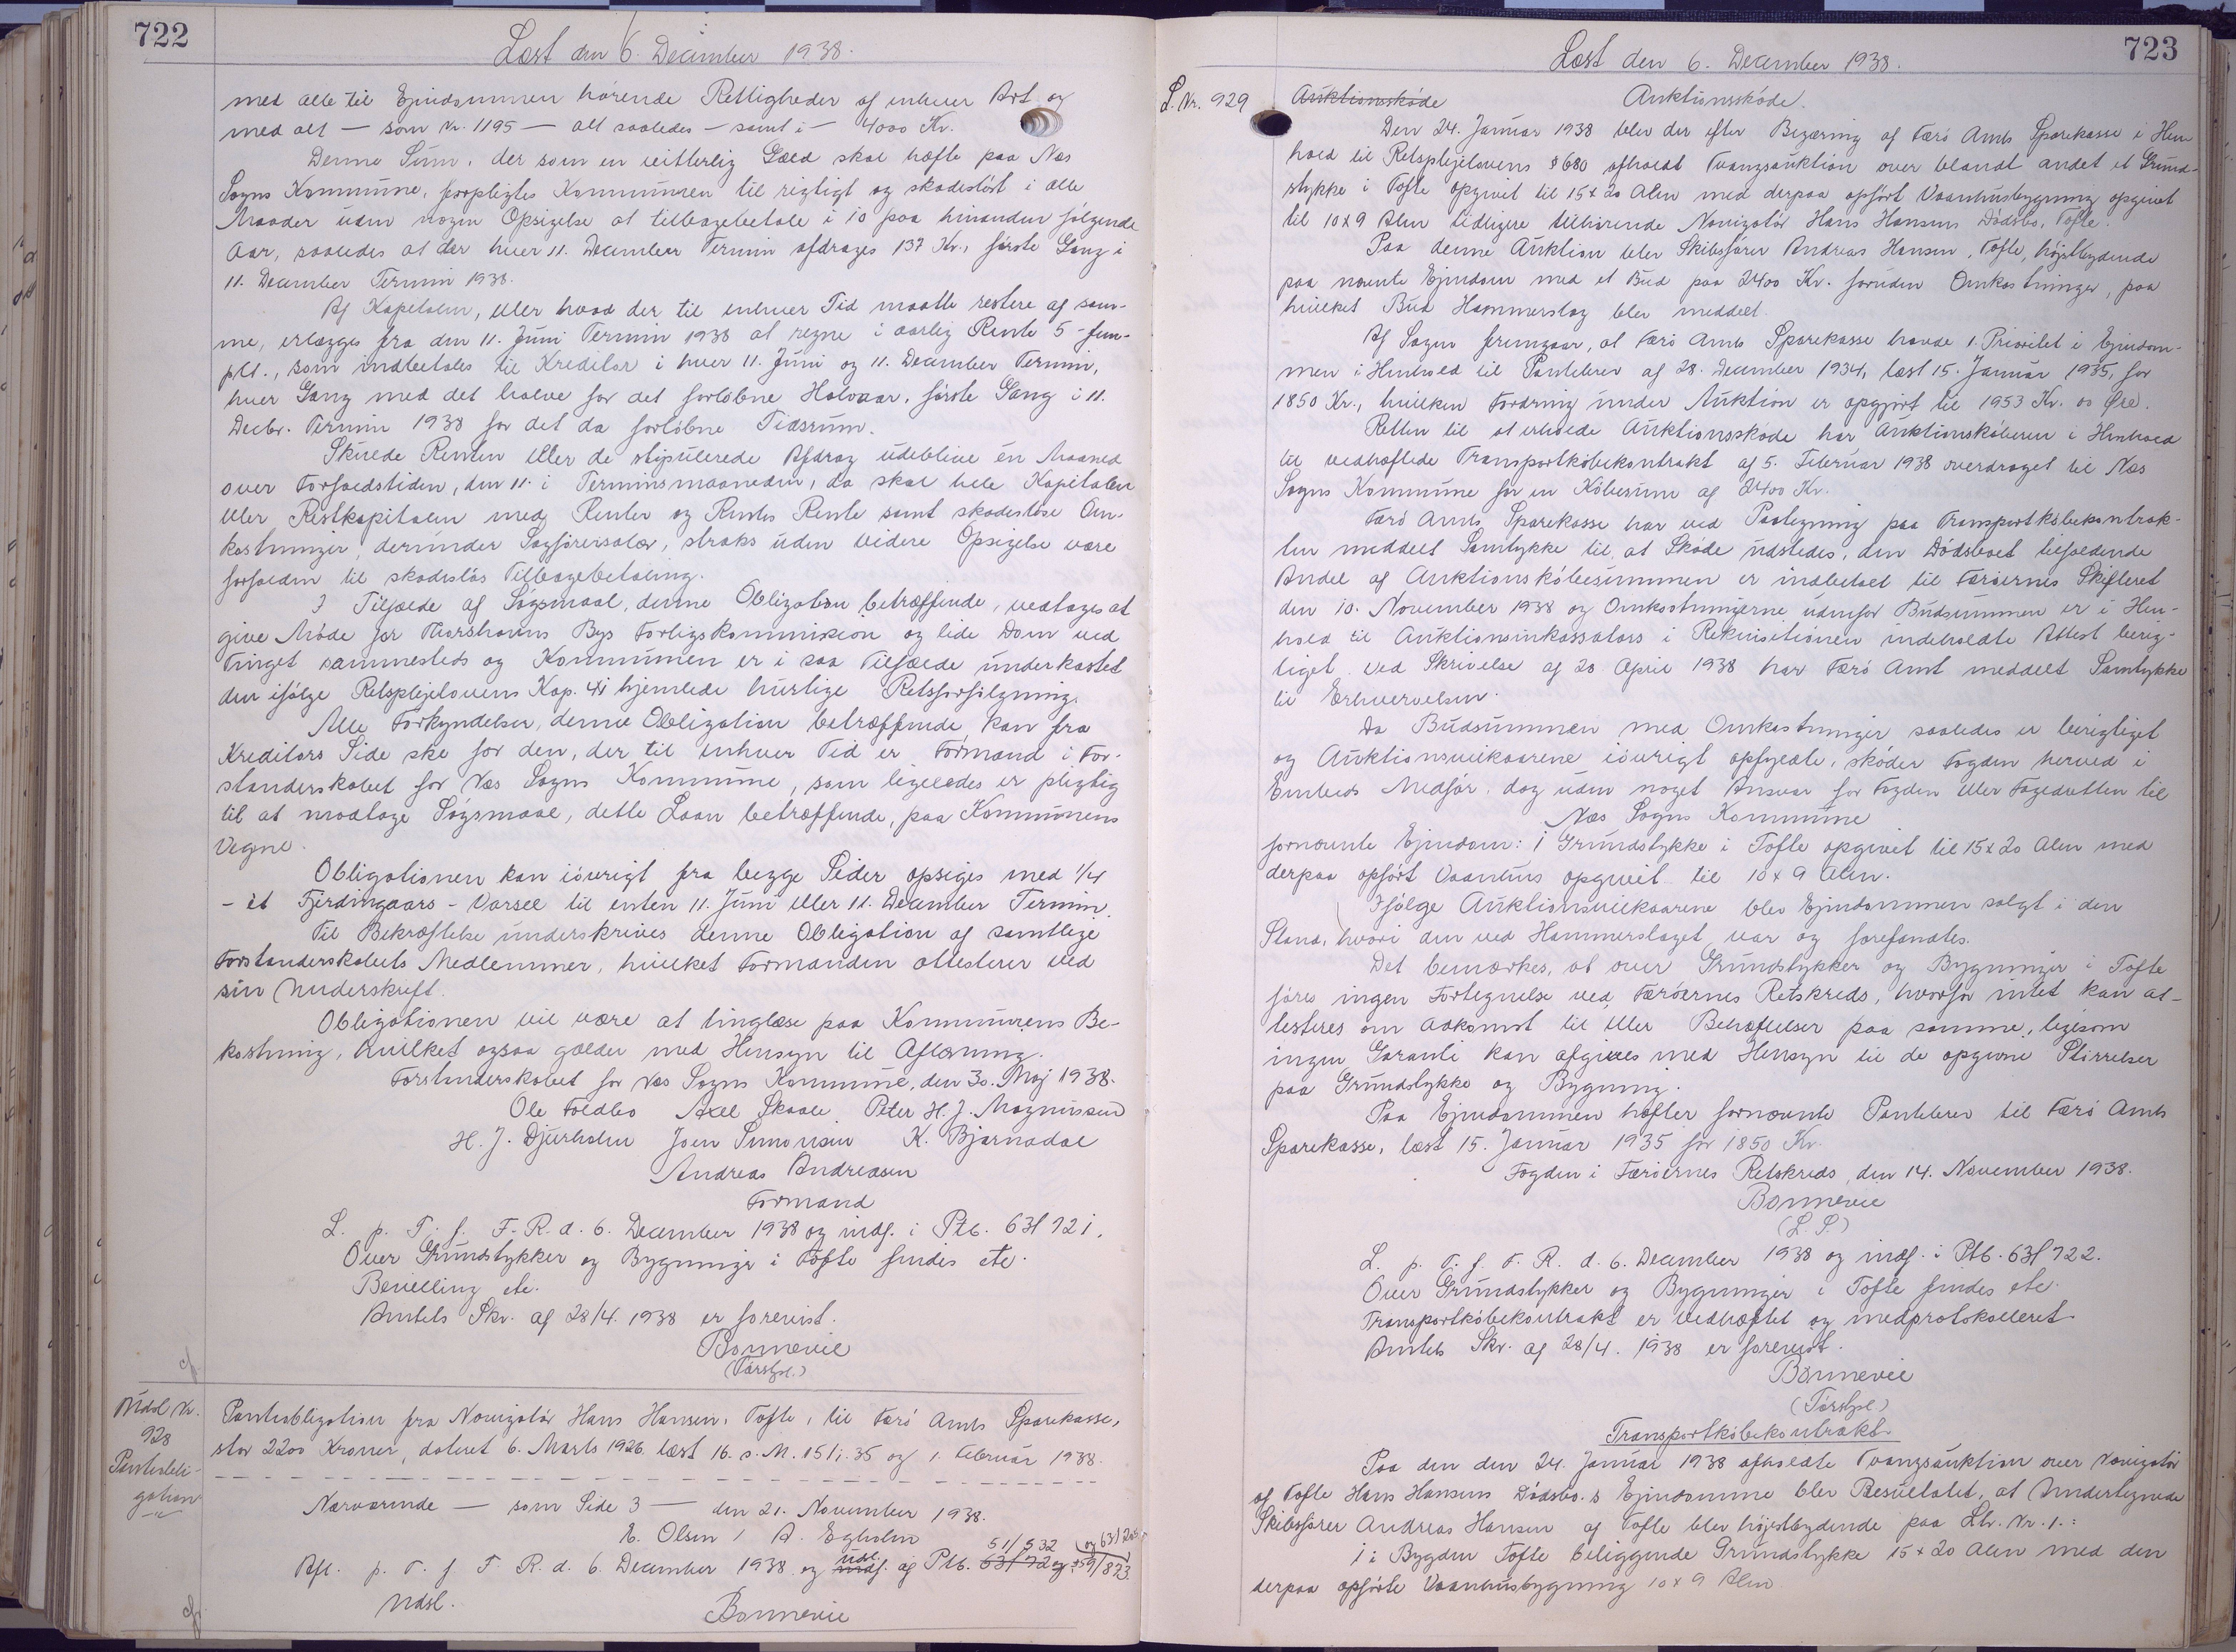 722
Læst den 6. December 1938.
med alle til Ejendommen hørende Rettigheder af enhver Art og
med alt — som Nr. 1195 — alt saaledes — samt i — 4000 Kr.
Denne Sum, der som en vitterlig Gæld skal hæfte paa Næs
Sogns Kommune, forpligtes Kommunen til rigtigt og skadesløst i alle
Maader uden nogen Opsigelse at tilbagebetale i 10 paa hinanden følgende
Aar, saaledes at der hver 11. December Termin afdrages 137 Kr., første Gang i
11. December Termin 1938.
Af Kapitalen, eller hvad der til enhver Tid maatte restere af sam-
me, erlægges fra den 11. Juni Termin 1938 at regne i aarlig Rente 5 - fem -
pCt., som indbetales til Kreditor i hver 11. Juni og 11. December Termin,
hver Gang med det halve for det forløbne Halvaar, første Gang i 11.
Decbr. Termin 1938 for det da forløbne Tidsrum.
Skulde Renten eller de stipulerede Afdrag udeblive én Maaned
over Forfaldstiden, den 11. i Terminsmaaneden, da skal hele Kapitalen
eller Restkapitalen med Renter og Renters Rente samt skadesløse Om-
kostninger, derunder Sagførersalær, straks uden videre Opsigelse være
forfalden til skadesløs Tilbagebetaling.
I Tilfælde af Søgsmaal, denne Obligation betræffende, vedtages at
give Møde for Thorshavns Bys Forligskommission og lide Dom ved
Tinget sammesteds og Kommunen er i saa Tilfælde underkastet
den ifølge Retsplejelovens Kap. 41 hjemlede hurtige Retsforfølgning.
Alle Forkyndelser, denne Obligation betræffende, kan fra
Kreditors Side ske for den, der til enhver Tid er Formand i For-
standerskabet for Næs Sogns Kommune, som ligeledes er pligtig
til at modtage Søgsmaal, dette Laan betræffende, paa Kommunens
Vegne.
Obligationen kan iøvrigt fra begge Sider opsiges med 1/4
- et Fjerdingaars - Varsel til enten 11. Juni eller 11. December Termin.
Til Bekræftelse underskrives denne Obligation af samtlige
Forstanderskabets Medlemmer, hvilket Formanden attesterer ved
sin Underskrift.
Obligationen vil være at tinglæse paa Kommunens Be-
kostning, hvilket ogsaa gælder med Hensyn til Aflæsning.
Forstanderskabet for Næs Sogns Kommune, den 30. Maj 1938.
Ole Foldbo Axel Skaale Peter H. J. Magnussen
H. J. Djurholm Joen Simonsen K. Bjarnadal
Andreas Andreasen
Formand
L. p. T. f. F. R. d. 6. December 1938 og indf. i Ptb. 63f 721.
Over Grundstykker og Bygninger i Tofte findes etc.
Bevilling etc.
Amtets Skr. af 28/4. 1938 er forevist.
Bonnevie
(Førstfm.)
Udsl Nr.
928
Pantobli-
gation
Pantobligation fra Navigatør Hans Hansen, Tofte, til Færø Amts Sparekasse,
stor 2200 Kroner, dateret 6. Marts 1926 læst 16. s. M. 15/1. 35 og 1. Februar 1938.
Nærværende — som Side 3 — den 21. November 1938.
E. Olsen / A. Egholm
51/532 og 63/20
Afl. p. T. f. F. R. d. 6. December 1938 og indf. udsl. af Ptb. 63f 72 og 59/823.
Udsl.
Bonnevie
723
Læst den 6. December 1938.
L. Nr. 929 Auktionsskøde Auktionsskøde.
Den 24. Januar 1938 blev der efter Begæring af Færø Amts Sparekasse i Hen-
hold til Retsplejelovens § 680 afholdt Tvangsauktion over blandt andet et Grund-
stykke i Tofte opgivet til 15 x 20 Alen med derpaa opført Vaanhusbygning opgivet
til 10 x 9 Alen tidligere tilhørende Navigatør Hans Hansens Dødsbo, Tofte.
Paa denne Auktion blev Skibsfører Andreas Hansen, Tofte, højstbydende
paa nævnte Ejendom med et Bud paa 2400 Kr. foruden Omkostninger, paa
hvilket Bud Hammerslag blev meddelt.
Af Sagen fremgaar, at Færø Amts Sparekasse havde 1. Prioritet i Ejendom-
men i Henhold til Pantebrev af 28. December 1934, læst 15. Januar 1935, for
1850 Kr., hvilken Fordring under Auktion er opgjort til 1953 Kr. 00 Øre.
Retten til at erholde Auktionsskøde har Auktionskøberen i Henhold
til vedhæftede Transportkøbekontrakt af 5. Februar 1938 overdraget til Næs
Sogns Kommune for en Købesum af 2400 Kr.
Færø Amts Sparekasse har ved Paategning paa Transportkøbekontrak-
ten meddelt Samtykke til, at Skøde udstedes, den Dødsboet tilfaldende
Andel af Auktionskøbesummen er indbetalt til Færøernes Skifteret
den 10. November 1938 og Omkostningerne udenfor Budsummen er i Hen-
hold til Auktionsinkassators i Rekvisitionen indeholdte Attest berig-
tiget. Ved Skrivelse af 28. April 1938 har Færø Amt meddelt Samtykke
til Erhvervelsen.
Da Budsummen med Omkostninger saaledes er berigtiget
og Auktionsvilkaarene iøvrigt opfyldte, skøder Fogden herved i
Embeds Medfør, dog uden noget Ansvar for Fogden eller Fogedretten til
Næs Sogns Kommune
fornævnte Ejendom: 1 Grundstykke i Tofte opgivet til 15 x 20 Alen med
derpaa opført Vaanhus opgivet til 10 x 9 Alen.
Ifølge Auktionsvilkaarene blev Ejendommen solgt i den
Stand, hvori den ved Hammerslaget var og forefandtes.
Det bemærkes, at over Grundstykker og Bygninger i Tofte
føres ingen Fortegnelse ved Færøernes Retskreds, hvorfor intet kan at-
testeres om Adkomst til eller Behæftelser paa samme, ligesom
ingen Garanti kan afgives med Hensyn til de opgivne Størrelser
paa Grundstykke og Bygning.
Paa Ejendommen hæfter fornævnte Pantebrev til Færø Amts
Sparekasse, læst 15. Januar 1935 for 1850 Kr.
Fogden i Færøernes Retskreds, den 14. November 1938.
Bonnevie
(L. S.)
L. p. T. f. F. R. d. 6. December 1938 og indf. i Ptb. 63f 722.
Over Grundstykker og Bygninger i Tofte findes etc.
Transportkøbekontrakt er vedhæftet og medprotokolleret.
Amtets Skr. af 28/4. 1938 er forevist.
Bonnevie
(Førstfm.)
Transportkøbekontrakt.
Paa den den 24. Januar 1938 afholdte Tvangsauktion over Navigatør
af Tofte Hans Hansens Dødsbo.s Ejendomme blev Resultatet, at Undertegnede
Skibsfører Andreas Hansen af Tofte blev højestbydende paa Lb. Nr. 1.:
1 i Bygden Tofte beliggende Grundstykke 15 x 20 Alen med den
derpaa opførte Vaanhusbygning 10 x 9 Alen